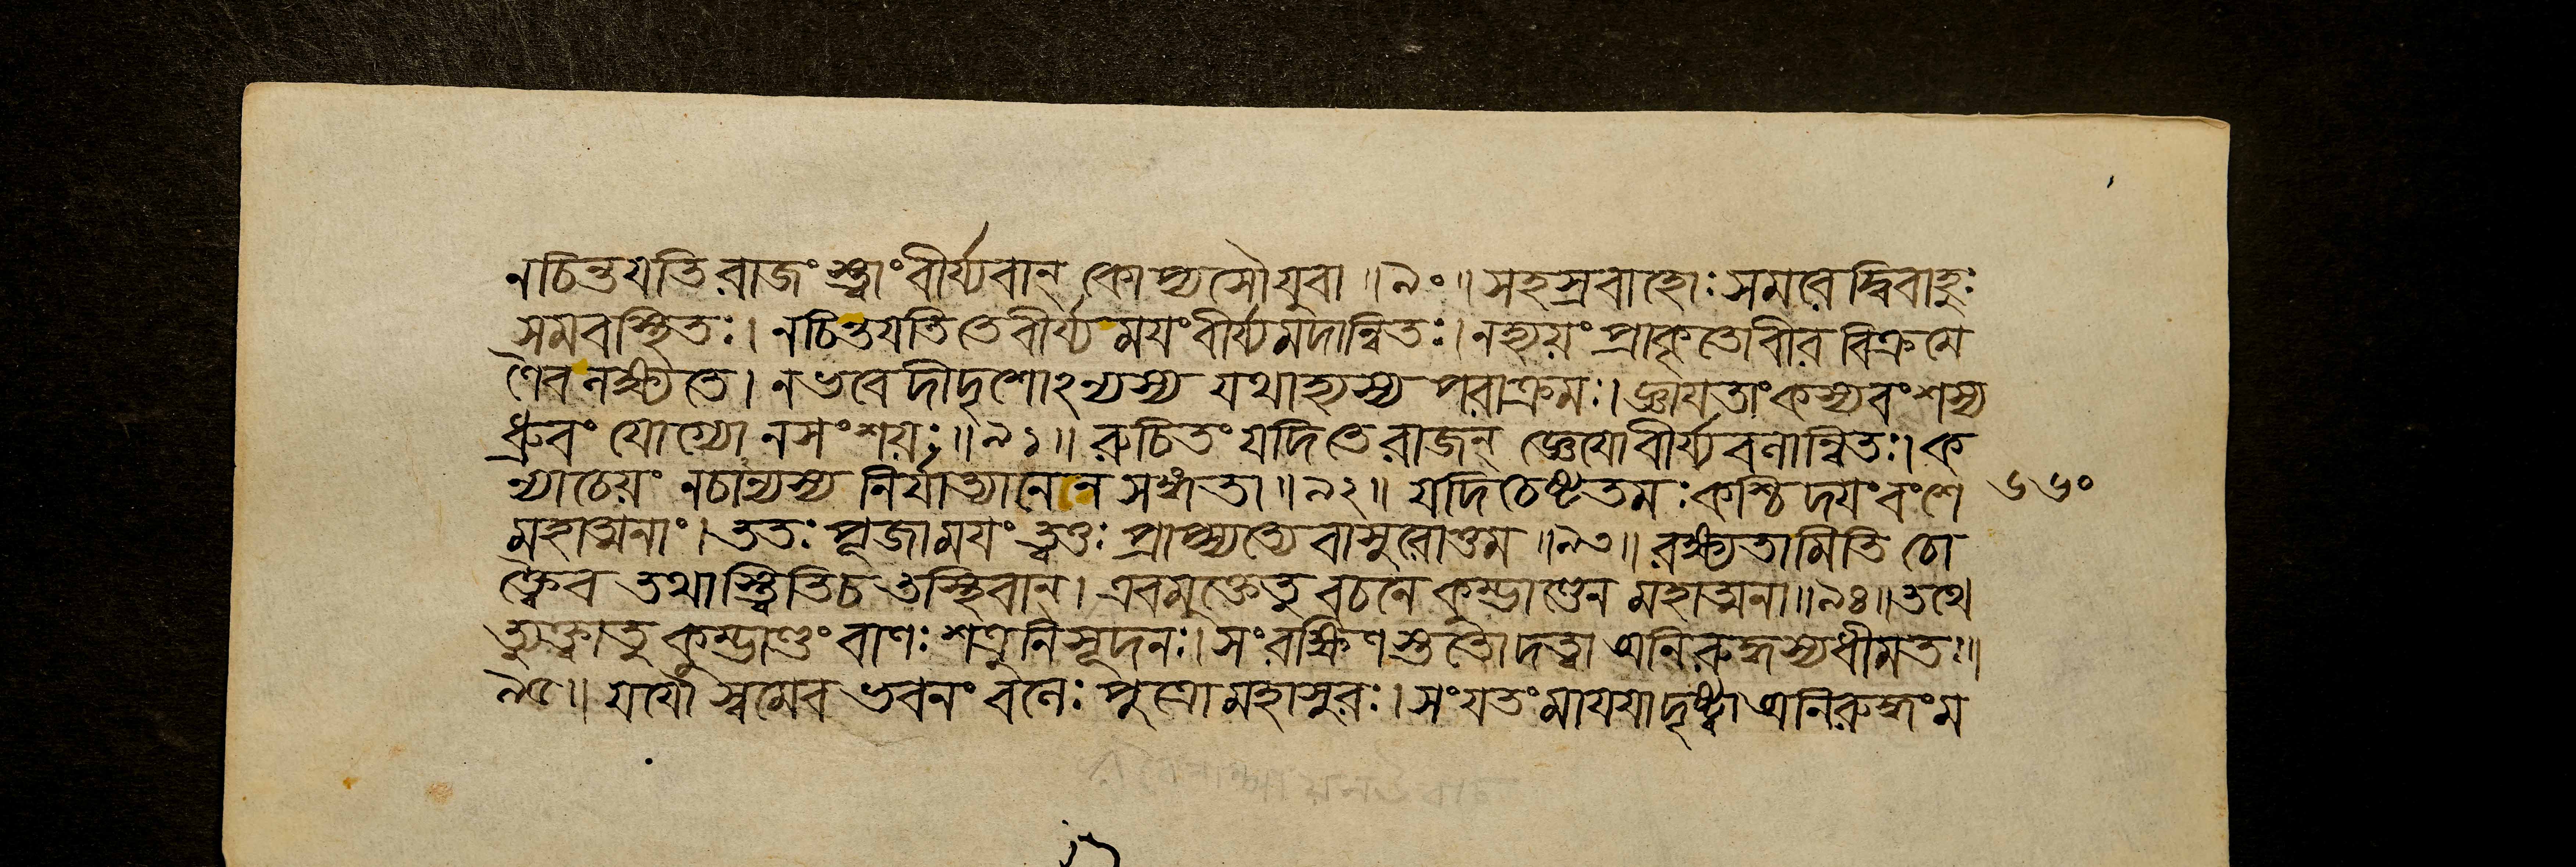 নচিন্তয়তি রাজংস্ত্বাং বীর্য্যবান্ কোপ্যসৌ যুবা ॥৯০॥ সহস্রবাহোঃ সমরে দ্বিবাহুঃ
সমবস্থিতঃ। নচিন্তয়তি তে বীর্য্যময়ং বীর্য্যমদান্বিতঃ। নহ্যয়ং প্রাকৃতো বীর বিক্রমে
ণৈব লক্ষ্যতে। ন ভবেদীদৃশোঽন্যস্য যথাহ্যস্য পরাক্রমঃ। জ্ঞায়তাং কস্য বংশস্য
ধ্রুবং যোগ্যো নসংশয়ঃ॥৯১॥ রুচিতং যদি তে রাজন্ জ্ঞেয়ো বীর্য্যবলান্বিতঃ। ক
ন্যাচেয়ং নচান্যস্য নির্যাত্যানেন সঙ্গতা ॥৯২॥ যদি চেষ্টতমঃ কশ্চিদয়ং বংশে ৬৬০
মহাত্মনাং। ততঃ পূজাময়ং ত্বত্তঃ প্রাপ্স্যত্যেবাসুরোত্তম ॥৯৩॥ রক্ষ্যতামিতি চো
ক্ত্বৈব তথাস্ত্বিতিচ তস্থিবান্। এবমুক্তেতু বচনে কুম্ভাণ্ডেন মহাত্মনা॥৯৪॥ তথে
ত্যুক্ত্বাতু কুম্ভাণ্ডং বাণঃ শত্রুনিসূদনঃ। সংরক্ষিণস্ততো দত্বা অনিরুদ্ধস্য ধীমতঃ॥
৯৫॥ যযৌ স্বমেব ভবনং বলেঃ পুত্রো মহাসুরঃ। সংযতং মায়য়া দৃষ্ট্বা অনিরুদ্ধং ম